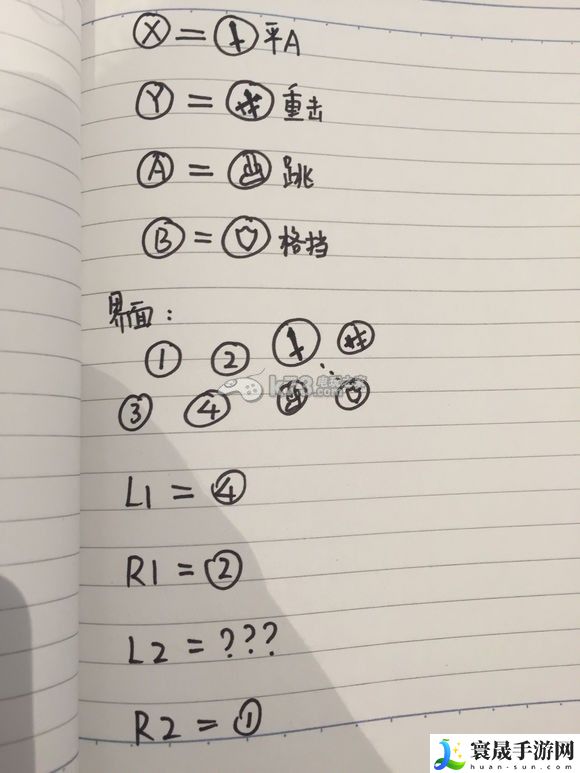 X = 平A
Y = 重击
A = 跳
B = 格挡
界面:
① ②
k73 电玩之家
③ ④
L1 = ④
R1 = ②
L2 = ???
R2 = ①
寰晟手游网
huan-sun.com